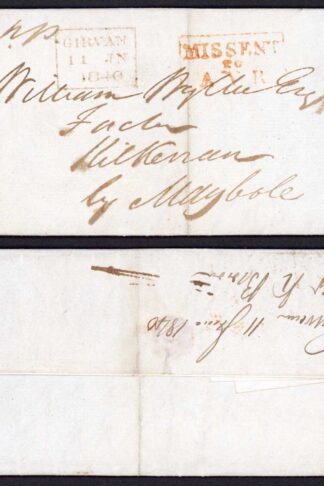 pp
GIRVAN
11 JN
1840
MISSENT
TO
AYR
William Wyllie Esq
Factor
Kilkerran
by Maybole
Girvan 11 June 1840